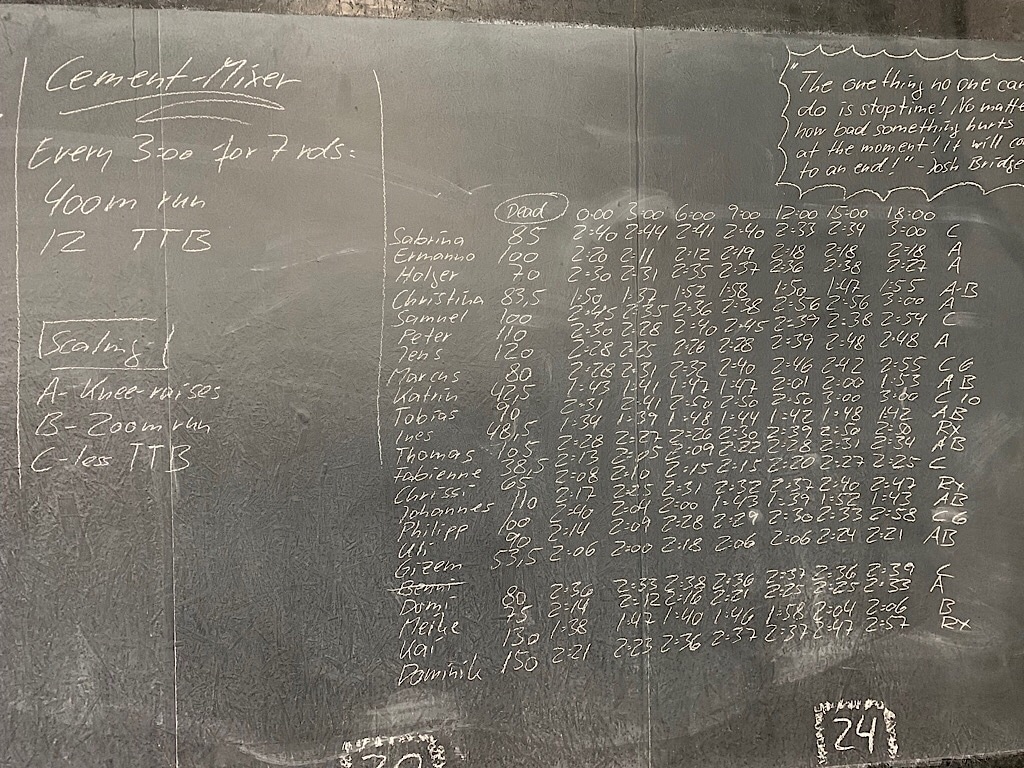 Cement-Mixer
Every 3:00 for 7 rds:
400m run
12 TTB
Scaling
A-Knee-raises
B-200m run
C-less TTB
"The one thing no one can
do is stop time! No matte
how bad something hurts
at the moment! it will co
to an end!" - Josh Bridge
Dead 0:00 3:00 6:00 9:00 12:00 15:00 18:00
Sabrina 85 2:40 2:44 2:41 2:40 2:33 2:39 3:00 C
Ermanno 100 2:20 2:11 2:12 2:19 2:18 2:18 2:18 A
Holger 70 2:30 2:31 2:35 2:37 2:36 2:38 2:27 A
Christina 83,5 1:50 1:37 1:52 1:58 1:50 1:47 1:55 A-B
Samuel 100 2:45 2:35 2:36 2:38 2:56 2:56 3:00 A
Peter 110 2:30 2:28 2:40 2:45 2:39 2:38 2:54 C
Jens 120 2:28 2:25 2:26 2:28 2:39 2:48 2:48 A
Marcus 80 2:28 2:31 2:32 2:40 2:46 2:42 2:55 C6
Katrin 42,5 1:43 1:41 1:47 1:47 2:01 2:00 1:53 AB
Tobias 90 2:31 2:41 2:50 2:50 2:50 3:00 3:00 C 10
Ines 48,5 1:34 1:39 1:48 1:44 1:42 1:48 1:42 AB
Thomas 105 2:28 2:27 2:26 2:30 2:39 2:50 2:50 Rx
Fabienne 38,5 2:13 2:05 2:09 2:22 2:28 2:31 2:34 AB
Chrissi 65 2:08 2:10 2:15 2:15 2:20 2:27 2:25 C
Johannes 110 2:17 2:25 2:31 2:32 2:37 2:40 2:47 Rx
Philipp 100 2:40 2:04 2:00 1:43 1:39 1:52 1:43 AB
Uli 90 2:14 2:09 2:28 2:29 2:30 2:33 2:58 C6
Gizem 53,5 2:06 2:00 2:18 2:06 2:06 2:24 2:21 AB
Benni
Domi 80 2:36 2:33 2:38 2:36 2:37 2:36 2:39 C
Meike 75 2:14 2:12 2:16 2:21 2:25 2:25 2:33 A
Kai 130 1:38 1:47 1:40 1:46 1:58 2:04 2:06 B
Dominik 150 2:21 2:23 2:36 2:37 2:37 2:47 2:57 Rx
24